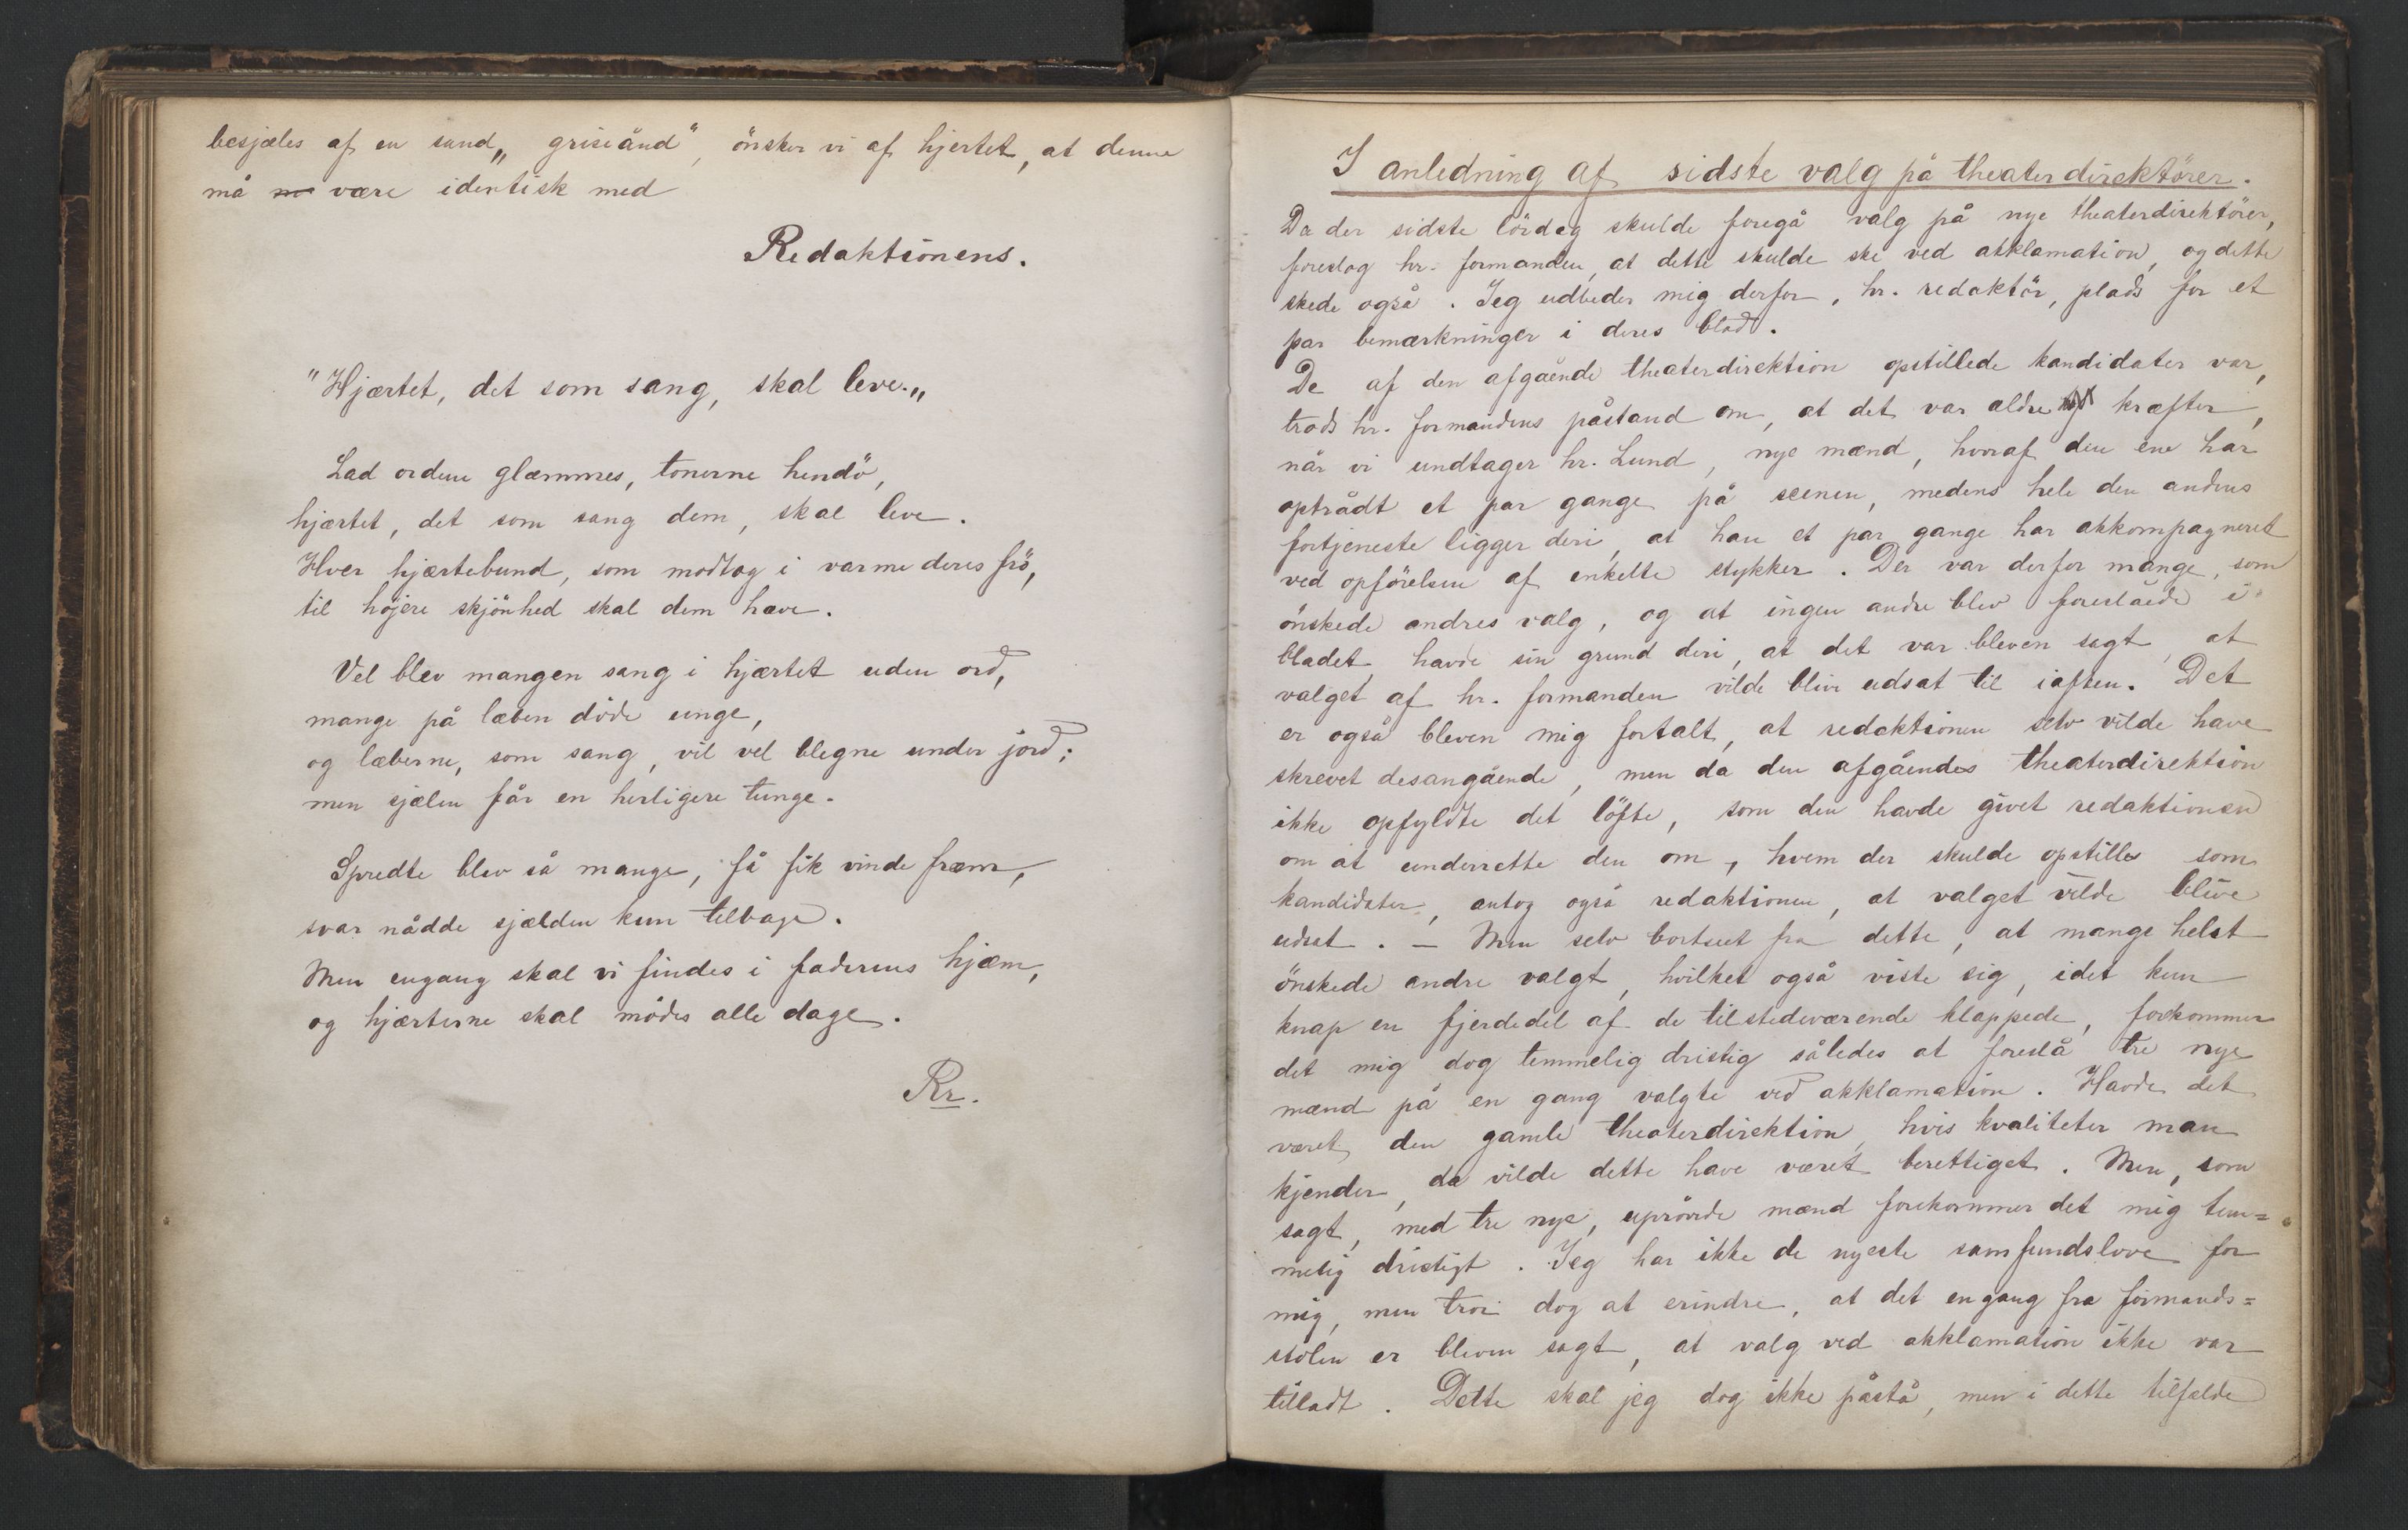 besjæles af en sand „griseånd“, önsker vi af hjertet, at denne
må være identisk med
Redaktionens.
"Hjærtet, det som sang, skal leve.„
Lad ordene glæmmes, tonerne hendö,
hjærtet, det som sang dem, skal leve.
Hver hjærtebund, som modtog i varme deres frö,
til höjere skjönhed skal dem hæve.
Vel blev mangen sang i hjærtet uden ord,
mange på læben döde unge,
og læberne, som sang, vil vel blegne under jord;
men sjælen får en herligere tunge.
Spredte blev så mange, få fik vinde fræm,
svar nådde sjælden kun tilbage.
Men engang skal vi findes i faderens hjæm,
og hjærterne skal mödes alle dage.
Rr.
I anledning af sidste valg på theaterdirektörer.
Da der sidste lördag skulde foregå valg på nye theaterdirektörer,
foreslog hr. formanden, at dette skulde ske ved akklamation, og dette
skede også. Jeg udbeder mig derfor, hr. redaktör, plads for et
par bemærkninger i deres blad.
De af den afgående theaterdirektion opstillede kandidater var,
trods hr. formandens påstand om, at det var ældre kræfter,
når vi undtager hr. Lund, nye mænd, hvoraf den ene har
optrådt et par gange på scenen, medens hele den andens
fortjeneste ligger deri, at han et par gange har akkompagneret
ved opförelsen af enkelte stykker. Der var derfor mange, som
önskede andres valg, og at ingen andre blev foreslåede i
bladet havde sin grund deri, at det var bleven sagt, at
valget af hr. formanden vilde blive udsat til iaften. Det
er også bleven mig fortalt, at redaktionen selv vilde have
skrevet desangående, men da den afgåendes theaterdirektion
ikke opfyldte det löfte, som den havde givet redaktionen
om at underrette den om, hvem der skulde opstilles som
kandidater, antog også redaktionen, at valget vilde blive
udsat. – Men selv bortseet fra dette, at mange helst
önskede andre valgt, hvilket også viste sig, idet kun
knap en fjerdedel af de tilstedeværende klappede, forekommer
det mig dog temmelig dristig således at foreslå tre nye
mænd på en gang valgte ved akklamation. Havde det
været den gamle theaterdirektion, hvis kvaliteter man
kjender, da vilde dette have været berettiget. Men, som
sagt, med tre nye, uprövede mænd forekommer det mig tem=
melig dristigt. Jeg har ikke de nyeste samfundslove for
mig, men tror dog at erindre, at det engang fra formands=
stolen er bleven sagt, at valg ved akklamation ikke var
tilladt. Dette skal jeg dog ikke påstå, men i dette tilfælde